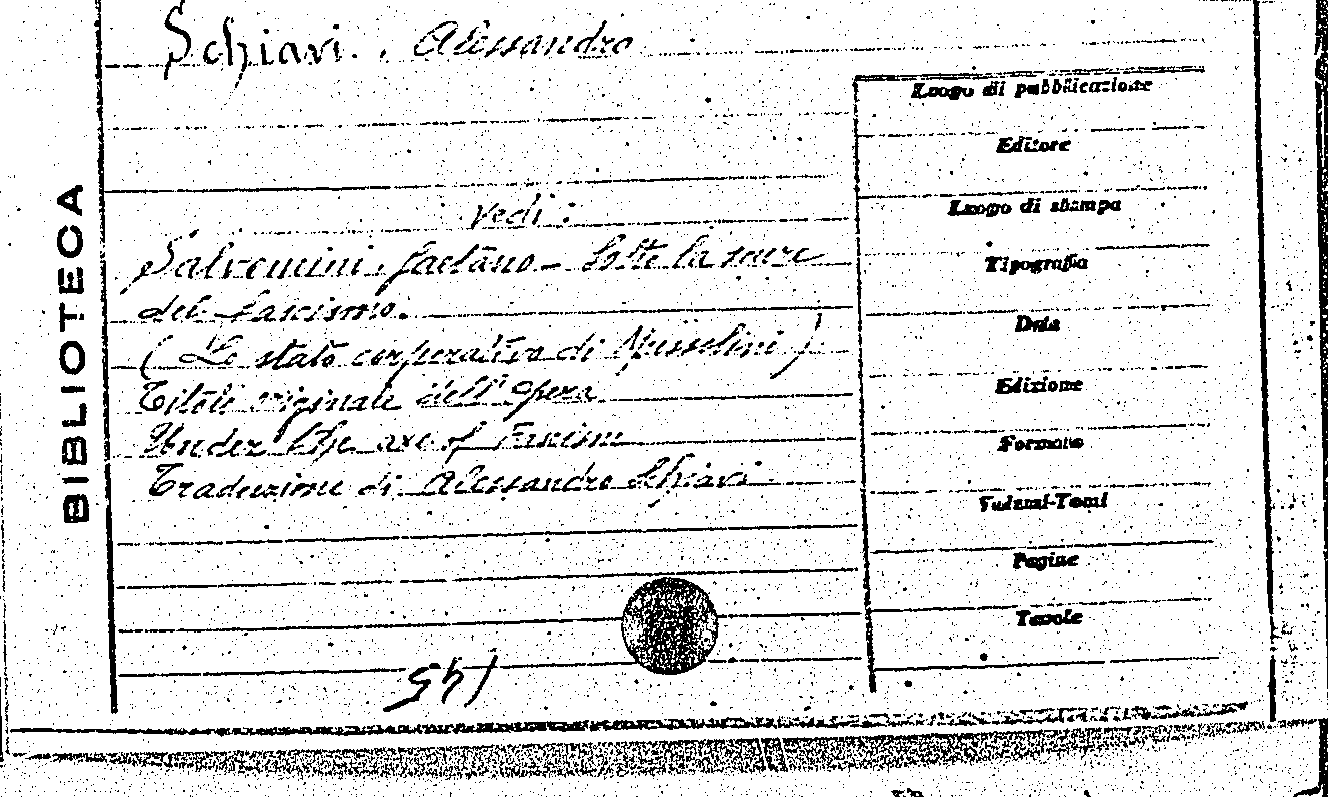 Schiavi. Alessandro
Vedi:
Salvemini, Gaetano - Sotto la scure
del fascismo.
(Lo stato corporativo di Mussolini)
Titolo originale dell'opera
Under the axe of Fascism
Traduzione di Alessandro Schiavi
BIBLIOTECA
Luogo di pubblicazione
Editore
Luogo di stampa
Tipografia
Data
Edizione
Formato
Volumi-Tomi
Pagine
Tavole